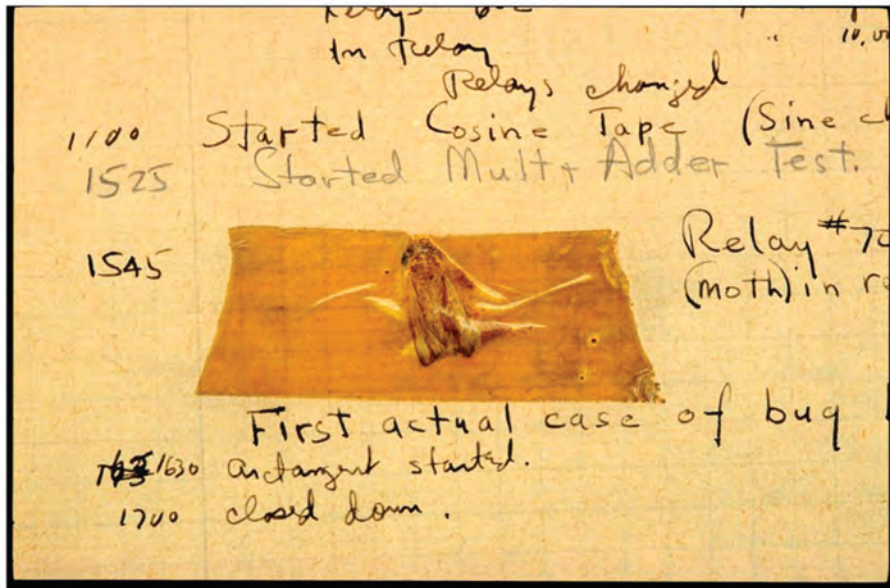 Relays
In Relay " 10,00
Relays changed
1100 Started Cosine Tape (Sine c
1525 Started Mult+ Adder Test.
1545 Relay #70
(moth) in r
First actual case of bug
1630 arctangent started.
1700 closed down.